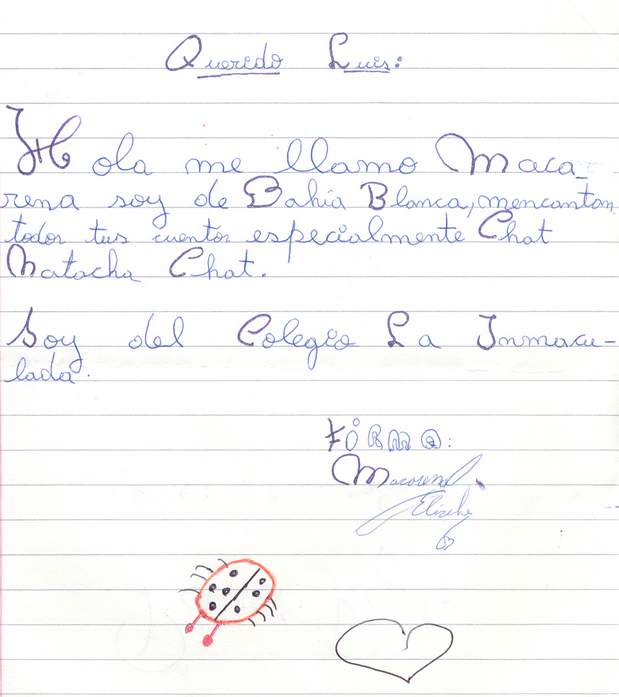 Queredo Lues:
Hola me llamo Maca-
rena soy de Bahía Blanca, mencantan
todos tus cuentos especialmente Chat
Natacha Chat.
Soy del Colegio La Inmacu-
lada.
FiRMa:
Macarena